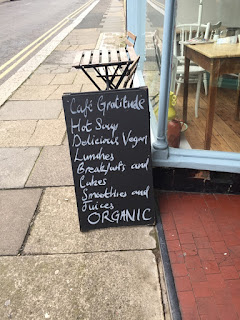 Café Gratitude
Hot Soup
Delicious Vegan
Lunches
Breakfasts and
Cakes
Smoothies and
Juices
ORGANIC